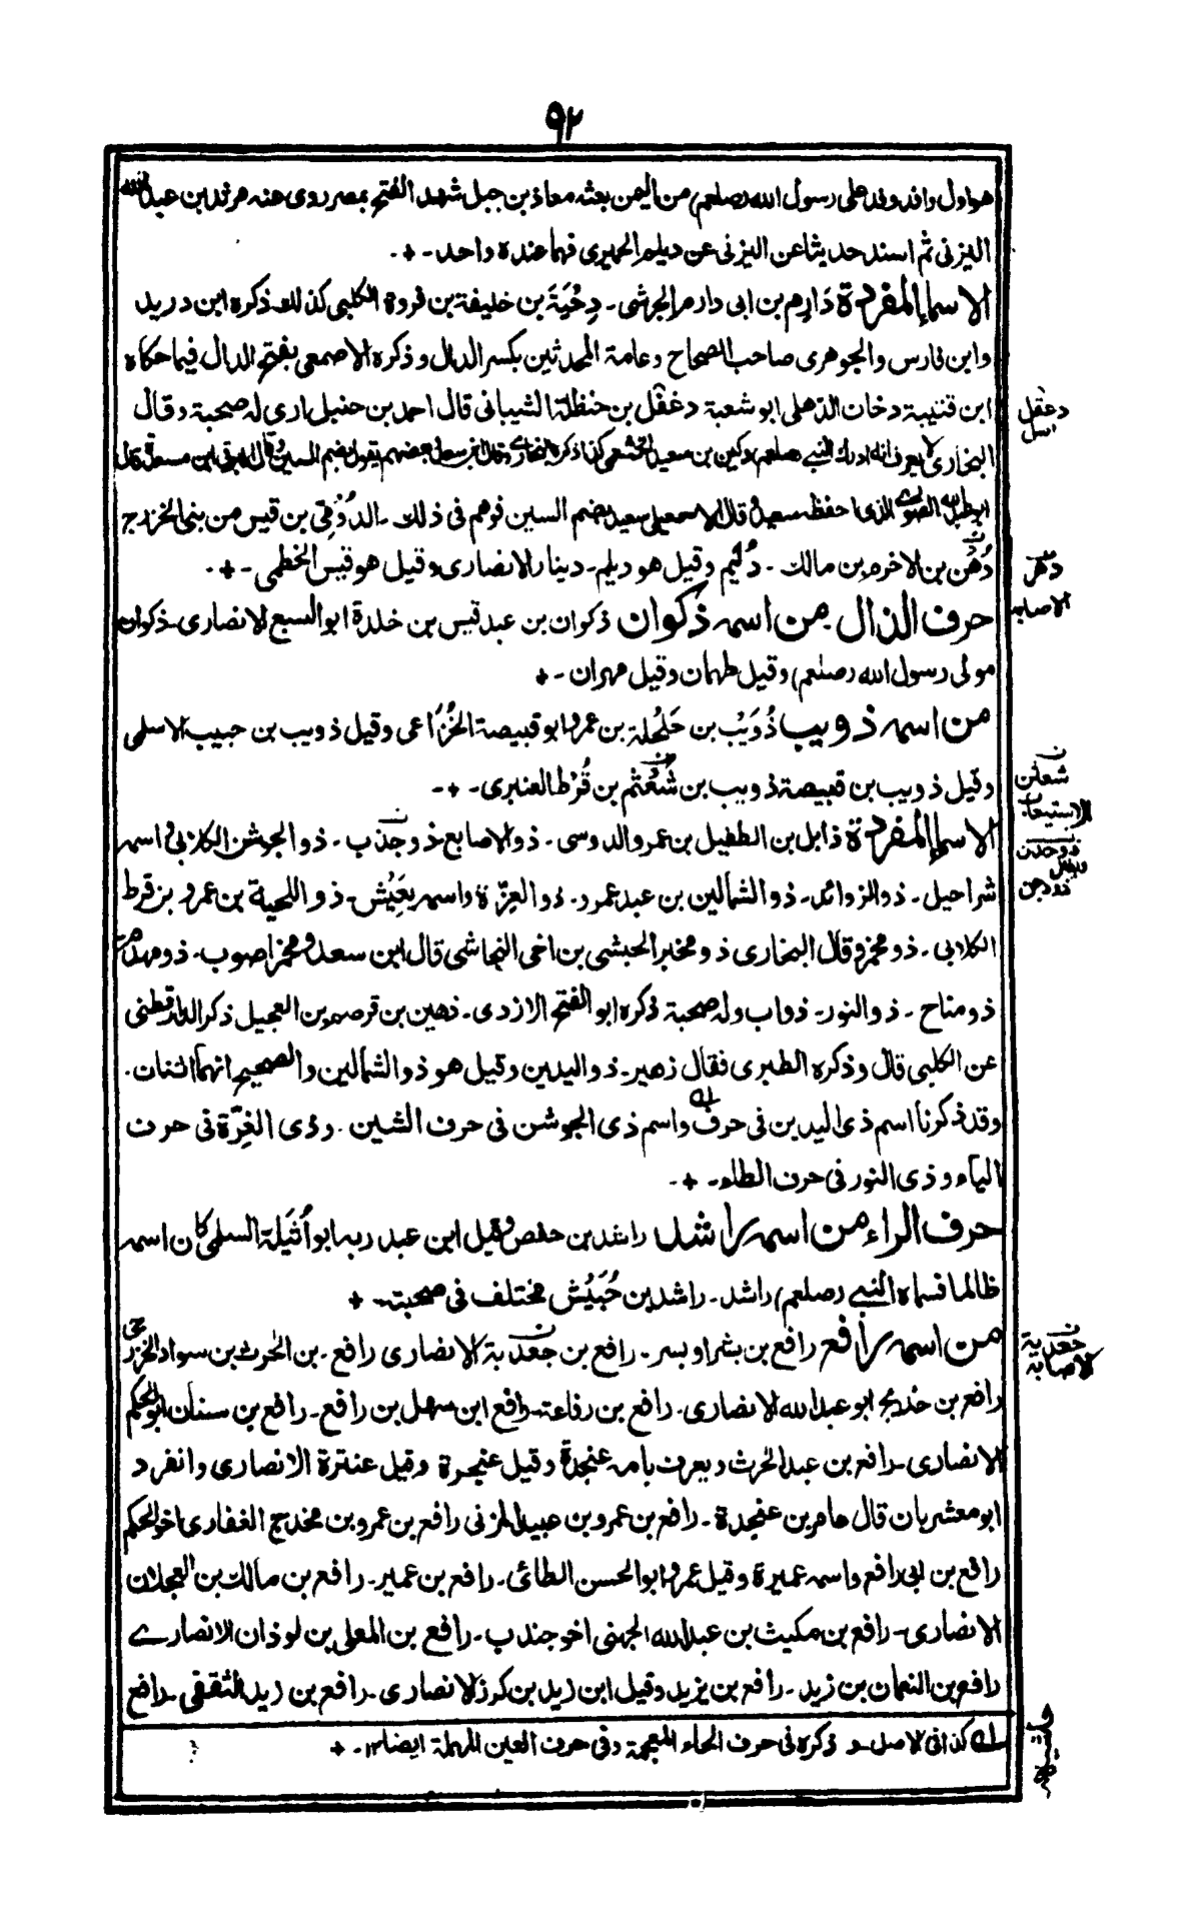 ٩٢
هو اول وافد وفد على رسول الله (صلعم) من اليمن بعثه معاذ بن جبل شهد الفتح بمصر روى عنه مرثد بن عبد الله
اليزنى ثم اسند حديثا عن اليزنى عن ديلم الحميرى فهما عنده واحد ـ ٠
الاسماء المفردة دَارِم بن ابى دارم الجرشى ـ دِحْيَة بن خليفة بن فروة الكلبى كذلك ذكره ابن دريد
وابن فارس والجوهرى صاحب الصحاح وعامة المحدثين بكسر الدال وذكره الاصمعى بفتح الدال فيما حكاه
ابن قتيبة دخان الذهلى ابو شعبة دغفل بن حنظلة الشيبانى قال احمد بن حنبل ارى له صحبة وقال
البخارى لا يعرف انه ادرك النبى صلعم دكين بن سعيد الخثعمى كذا ذكره البخارى وقال بعضهم يقول بضم السين
الصورى الذى احفظ سعيد وقال الاسمعيلى سعيد بضم السين فوهم فى ذلك ـ الدُوَفى بن قيس من بنى الخزرج
دُهْن بن الاخرم بن مالك ـ دُلَيم وقيل هو ديلم ـ دينار الانصارى وقيل هو قيس الخطمى ـ
حرف الذال من اسمه ذكوان ذكوان بن عبد قيس بن خلدة ابو السبع الانصارى ـ ذكوان
مولى رسول الله (صلعم) وقيل طهمان وقيل مهران ـ
من اسمه ذويب ذُوَيْب بن حَلْحَلة بن عمرو ابو قبيصة الخُزَاعى وقيل ذويب بن حبيب الاسلمى
وقيل ذويب بن قبيصة ذويب بن شُعْثُم بن قُرْط العنبرى ـ
الاسماء المفردة ذابل بن الطفيل بن عمرو الدوسى ـ ذو الاصابع ذو جَذب ـ ذو الجوشن الكلابى اسمه
شراحيل ـ ذو الزوائد ـ ذو الشمالين بن عبد عمرو ـ ذو الغِرّة واسمه يَعِيْش ـ ذو اللحية بن عمرو بن قرط
الكلابى ـ ذو مخمر وقال البخارى ذو مخبر الحبشى بن اخى النجاشى قال ابن سعد ومخمر اصوب ـ ذو مهدم
ذو مناح ـ ذو النور ـ ذواب وله صحبة ذكره ابو الفتح الازدى ـ ذهين بن قرصم بن العجيل ذكر الدارقطنى
عن الكلبى قال وذكره الطبرى فقال زهير ـ ذو اليدين وقيل هو ذو الشمالين والصحيح انهما اثنان ـ
وقد ذكرنا اسم ذى اليدين فى حرف له واسم ذى الجوشن فى حرف الشين ـ وذى الغِرّة فى حرف
الياء وذى النور فى حرف الطاء ـ
حرف الراء من اسمه راشد راشد بن حفص وقيل ابن عبد ربه ابو اُثَيلة السلمى كان اسمه
ظالما فسماه النبى (صلعم) راشد ـ راشد بن حُبَيْش مختلف فى صحبته ـ
من اسمه رافع رافع بن بشر او بسر ـ رافع بن جعدبة الانصارى رافع ـ بن الحرث بن سواد الخزرجى
رافع بن خديج ابو عبد الله الانصارى ـ رافع بن رفاعة ـ رافع ابن سهل بن رافع ـ رافع بن سنان ابو الحكم
الانصارى ـ رافع بن عبد الحرث ويعرف بامه عنجدة وقيل عنجرة وقيل عنترة الانصارى وانفرد
ابو معشر بان قال عامر بن عنجدة ـ رافع بن عمرو بن عبيد المزنى رافع بن عمرو بن مخدج الغفارى اخو الحكم
رافع بن ابى رافع واسمه عميرة وقيل عمرو ابو الحسن الطائى ـ رافع بن عمير ـ رافع بن مالك بن العجلان
الانصارى ـ رافع بن مكيث بن عبد الله الجهنى اخو جندب ـ رافع بن المعلى بن لوذان الانصارى
رافع بن النعمان بن زيد ـ رافع بن يزيد وقيل ابن زيد بن كرز الانصارى ـ رافع بن زيد الثقفى ـ رافع
له كذا فى الاصل ـ و ذكره فى حرف الخاء المعجمة وفى حرف العين المهملة ايضا ١٢ ـ
دغفل
اسد
دهر
الاصابه
ن
شعثن
الاستيعاب
ن
ذو جدن
وقيل
ذو دجن
ن
جعدبة
الاصابة